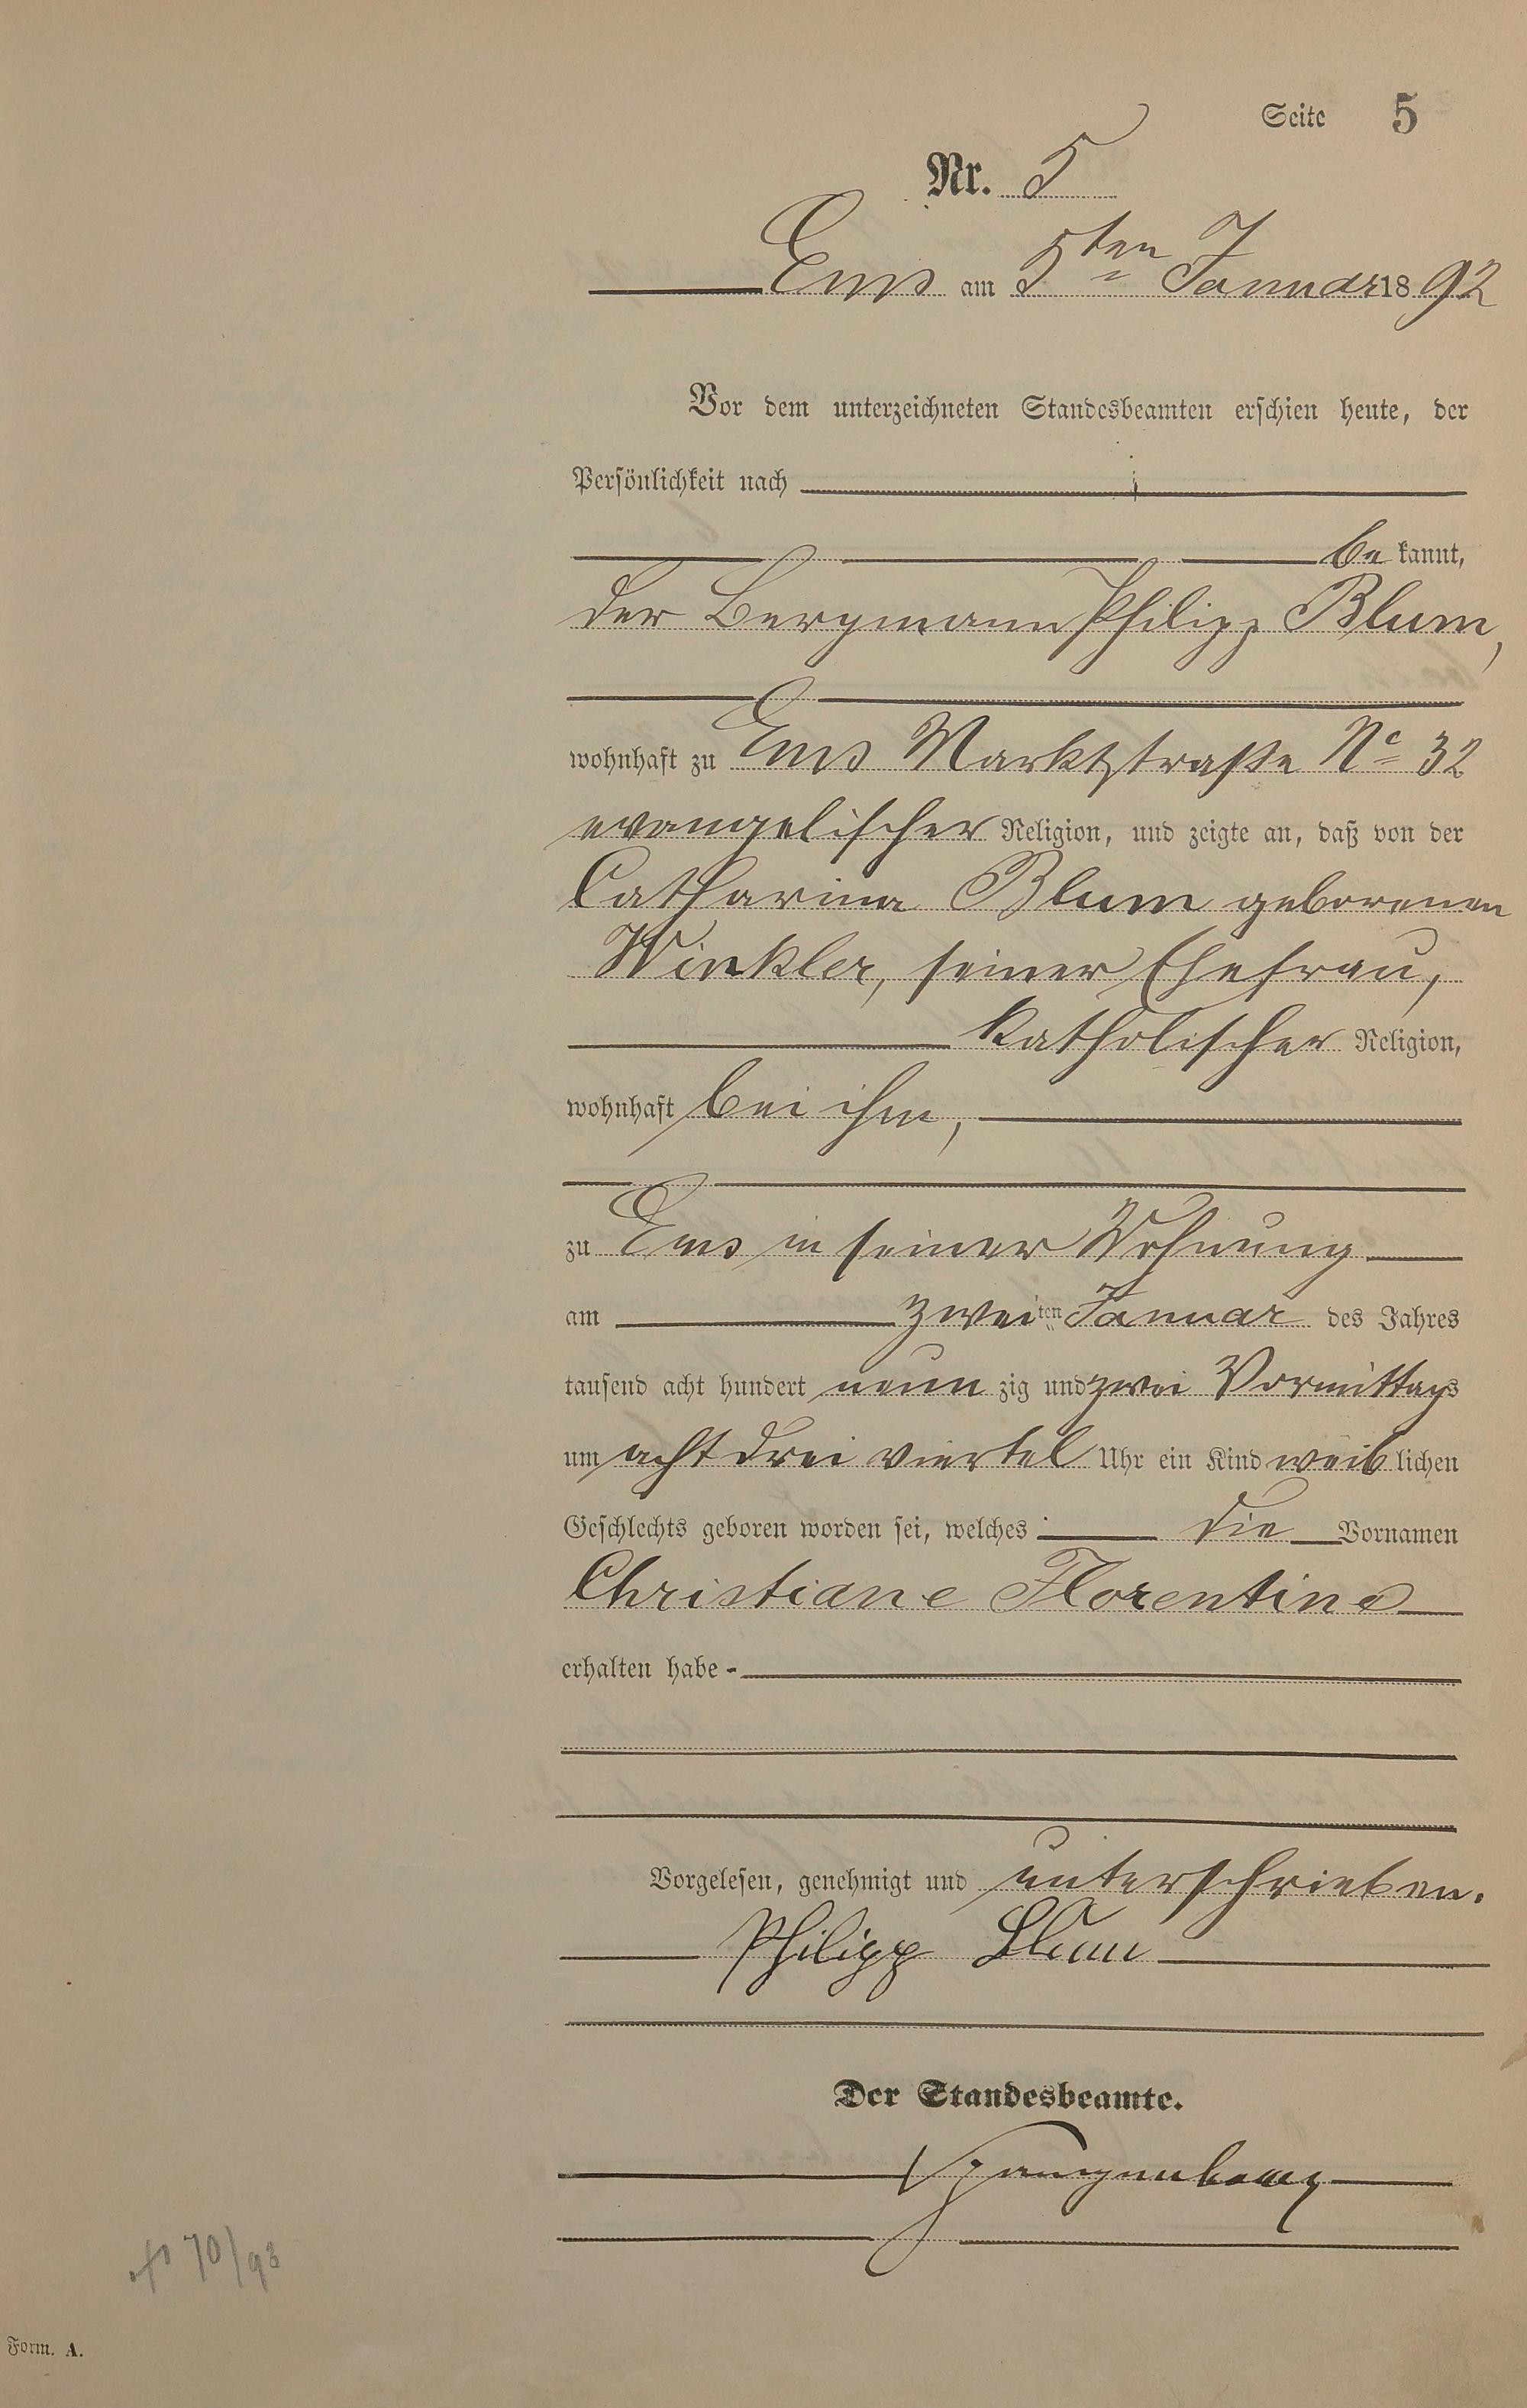 Seite 5
Nr. 5
Ems am 5ten Januar 1892
Vor dem unterzeichneten Standesbeamten erschien heute, der
Persönlichkeit nach
be kannt,
der Bergmann Philipp Blum,
wohnhaft zu Ems Marktstraße No 32
evangelischer Religion, und zeigte an, daß von der
Catharina Blum geborenen
Winkler, seiner Ehefrau,
katholischer Religion,
wohnhaft bei ihm,
zu Ems in seiner Wohnung
am zweiten Januar des Jahres
tausend acht hundert neun zig und zwei Vormittags
um acht drei viertel Uhr ein Kind weib lichen
Geschlechts geboren worden sei, welches die Vornamen
Christiane Florentine
erhalten habe
Vorgelesen, genehmigt und unterschrieben.
Philipp Blum
Der Standesbeamte.
Spangenberg
70/93
Form. A.